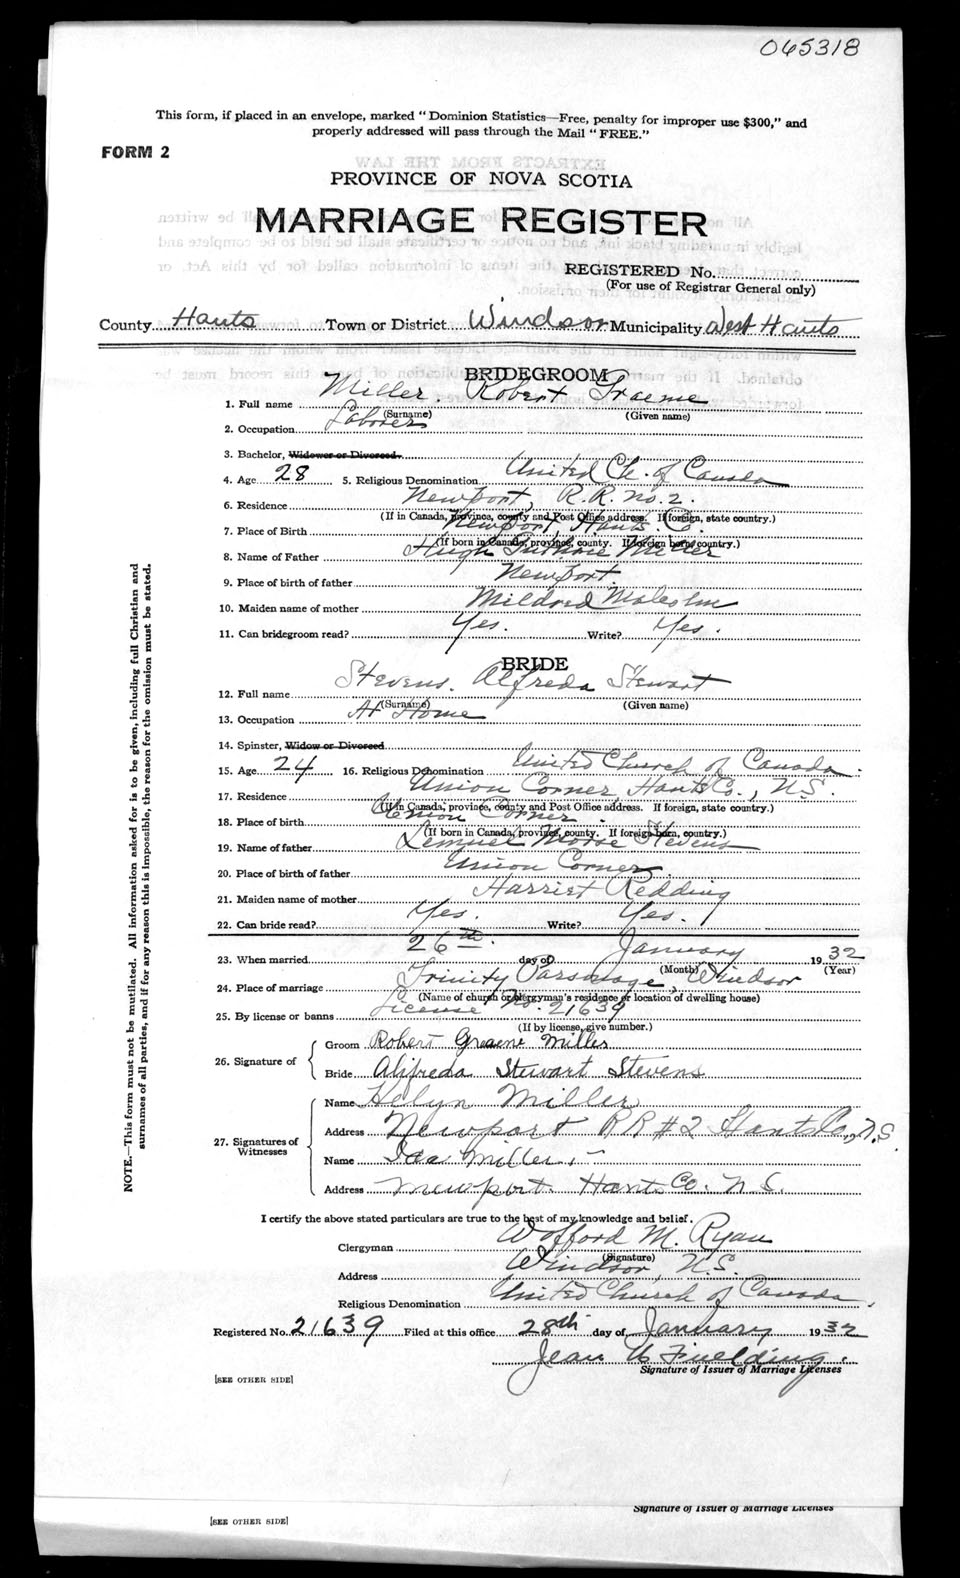 065318
This form, if placed in an envelope, marked "Dominion Statistics—Free, penalty for improper use $300," and
properly addressed will pass through the Mail "FREE."
FORM 2
PROVINCE OF NOVA SCOTIA
MARRIAGE REGISTER
REGISTERED No.
(For use of Registrar General only)
County Hants Town or District Windsor Municipality West Hants
BRIDEGROOM
1. Full name Miller, Robert Graeme
(Surname) (Given name)
2. Occupation Laborer
3. Bachelor, Widower or Divorced.
4. Age 28 5. Religious Denomination United Ch. of Canada
6. Residence Newport, R.R. No. 2.
(If in Canada, province, county and Post Office address. If foreign, state country.)
7. Place of Birth Newport, Hants Co.
(If born in Canada, province, county. If foreign born, country.)
8. Name of Father Hugh Guthrie Miller
9. Place of birth of father Newport.
10. Maiden name of mother Mildred Malcolm
11. Can bridegroom read? Yes. Write? Yes.
BRIDE
12. Full name Stevens. Alfreda Stewart
(Surname) (Given name)
13. Occupation At Home
14. Spinster, Widow or Divorced
15. Age 24 16. Religious Denomination United Church of Canada.
17. Residence Union Corner, Hants Co., N.S.
(If in Canada, province, county and Post Office address. If foreign, state country.)
18. Place of birth Union Corner.
(If born in Canada, province, county. If foreign born, country.)
19. Name of father Lemuel Morse Stevens
20. Place of birth of father Union Corner.
21. Maiden name of mother Harriet Redding
22. Can bride read? Yes. Write? Yes.
23. When married 26th. day of January 1932
(Month) (Year)
24. Place of marriage Trinity Parsonage, Windsor
(Name of church or clergyman's residence or location of dwelling house)
25. By license or banns License No. 21639
(If by license, give number.)
26. Signature of
Groom Robert Graeme Miller
Bride Alfreda Stewart Stevens
27. Signatures of Witnesses
Name Helyn Miller
Address Newport RR #2 Hants Co., N.S
Name Ida Miller
Address Newport Hants Co. N.S.
I certify the above stated particulars are true to the best of my knowledge and belief.
Clergyman Wofford M. Ryan
(Signature)
Address Windsor, N.S.
Religious Denomination United Church of Canada.
Registered No. 21639 Filed at this office 28th day of January 1932
Jean Fielding.
Signature of Issuer of Marriage Licenses
[SEE OTHER SIDE]
NOTE.—This form must not be mutilated. All information asked for is to be given, including full Christian and
surnames of all parties, and if for any reason this is impossible, the reason for the omission must be stated.
Signature of Issuer of Marriage Licenses
[SEE OTHER SIDE]